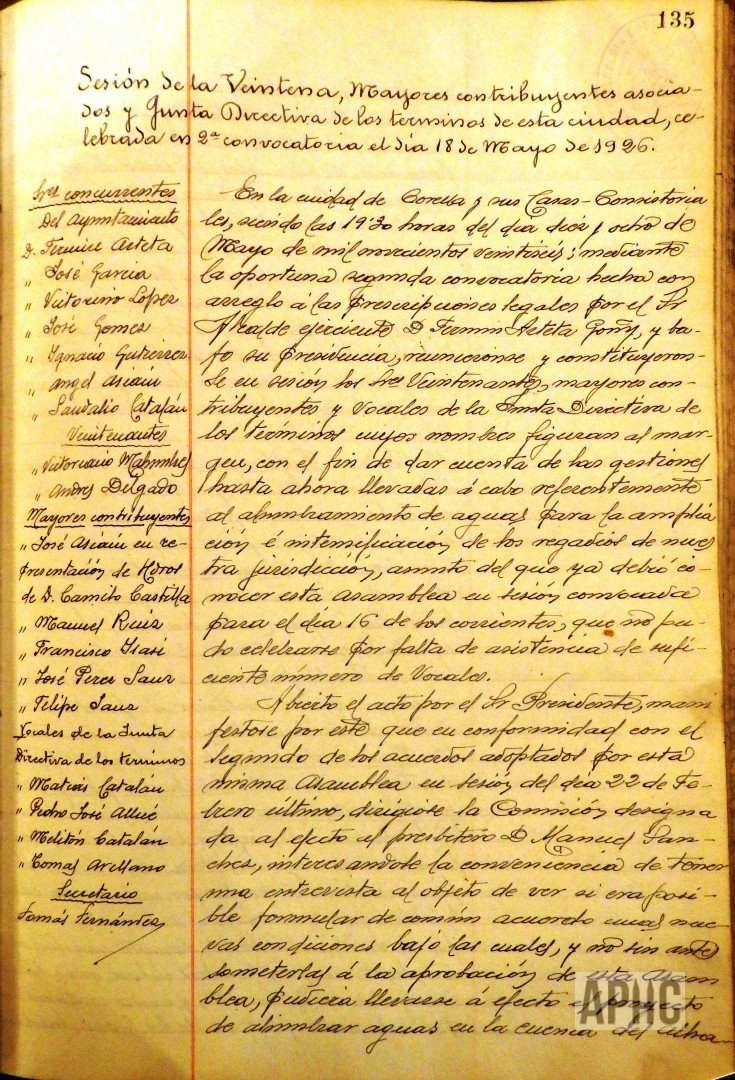 135
Sesión de la Veintena, Mayores contribuyentes asocia-
dos y Junta Directiva de los terminos de esta ciudad, ce-
lebrada en 2ª convocatoria el día 18 de Mayo de 1926.
Sres concurrentes
Del Ayuntamiento
D. Fermin Arteta
„ José Garcia
„ Victorino Lopez
„ José Gomez
„ Ignacio Gutierrez
„ Angel Asiain
„ Sandalio Catalán
Veintenantes
„ Victoriano
„ Andres Delgado
Mayores contribuyentes
„ José Asiain en re-
presentación de Hdros
de D. Camilo Castilla
„ Manuel Ruiz
„ Francisco Isasi
„ José Perez Sanz
„ Felipe Sanz
Vocales de la Junta
Directiva de los terminos
„ Matias Catalán
„ Pedro José Allué
„ Melitón Catalán
„ Tomas Arellano
Secretario
Tomás Fernández
En la ciudad de Corella y sus Casas-Consistoria
les, siendo las 19'30 horas del día diez y ocho de
Mayo de mil novecientos veintiseis; mediante
la oportuna segunda convocatoria hecha con
arreglo a las prescripciones legales por el Sr
Alcalde ejerciente D. Fermin Arteta, y ba-
jo su Presidencia, reunieronse y constituyeron-
se en sesión los Sres Veintenantes, mayores con-
tribuyentes y Vocales de la Junta Directiva de
los términos cuyos nombres figuran al mar-
gen, con el fin de dar cuenta de las gestiones
hasta ahora llevadas á cabo referentemente
al alumbramiento de aguas para la amplia
ción é intensificación de los regadíos de nues
tra jurisdicción, asunto del que ya debió co-
nocer esta Asamblea en sesión convocada
para el día 16 de los corrientes, que no pu-
do celebrarse por falta de asistencia de sufi-
ciente número de Vocales.
Abierto el acto por el Sr Presidente, mani
festose por este que en conformidad con el
segundo de los acuerdos adoptados por esta
misma Asamblea en sesión del día 22 de Fe-
brero último, dirigiose la Comisión designa
da al efecto al presbitero D. Manuel San-
chez, interesandole la conveniencia de tener
una entrevista al objeto de ver si era posi-
ble formular de común acuerdo unas nue-
vas condiciones bajo las cuales, y no sin antes
someterlas á la aprobación de esta Asam
blea, pudiera llevarse á efecto el proyecto
de alumbrar aguas en la cuenca del
APHC